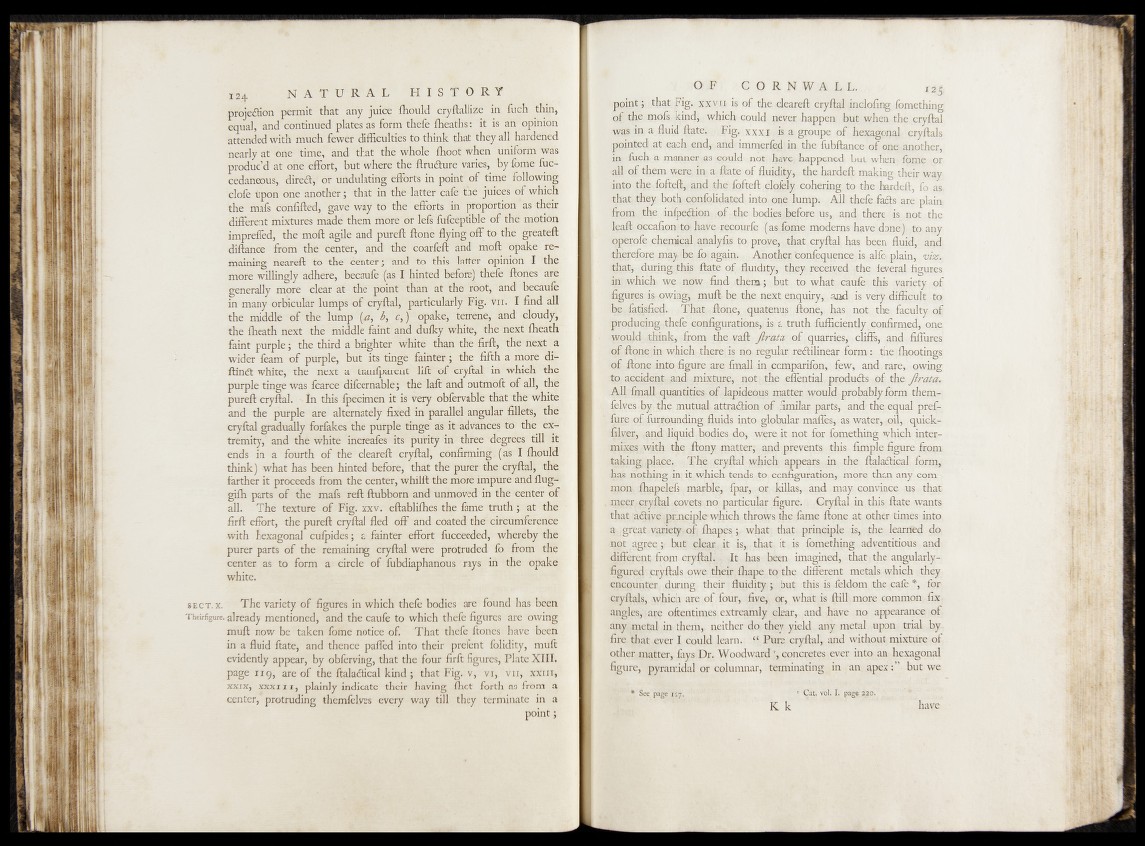 124 NATURAL HISTORY
projection permit that any juice ſhould cryſtallize in ſuch thin,
equal, and continued plates as form theſe ſheaths: it is an opinion
attended with much fewer difficulties to think that they all hardened
nearly at one time, and that the whole ſhoot when uniform was
produc'd at one effort, but where the ſtructure varies, by ſome ſuc-
cedaneous, direct, or undulating efforts in point of time following
cloſe upon one another; that in the latter caſe the juices of which
the maſs conſiſted, gave way to the efforts in proportion as their
different mixtures made them more or leſs ſuſceptible of the motion
impreſſed, the moſt agile and pureſt ſtone flying off to the greateſt
diſtance from the center, and the coarſeſt and moſt opake re-
maining neareſt to the center; and to this latter opinion I the
more willingly adhere, becauſe (as I hinted before) theſe ſtones are
generally more clear at the point than at the root, and becauſe
in many orbicular lumps of cryſtal, particularly Fig. VII. I find all
the middle of the lump (a, b, c,) opake, terrene, and cloudy,
the ſheath next the middle faint and duſky white, the next ſheath
faint purple; the third a brighter white than the firſt, the next a
wider ſeam of purple, but its tinge fainter; the fifth a more di-
ſtinct white, the next a tranſparent liſt of cryſtal in which the
purple tinge was ſcarce diſcernable; the laſt and outmoſt of all, the
pureſt cryſtal. In this ſpecimen it is very obſervable that the white
and the purple are alternately fixed in parallel angular fillets, the
cryſtal gradually forſakes the purple tinge as it advances to the ex-
tremity, and the white increaſes its purity in three degrees till it
ends in a fourth of the cleareſt cryſtal, confirming (as I ſhould
think) what has been hinted before, that the purer the cryſtal, the
farther it proceeds from the center, whilſt the more impure and ſlug-
giſh parts of the maſs reſt ſtubborn and unmoved in the center of
all. The texture of Fig. XXV. eſtabliſhes the ſame truth; at the
firſt effort, the pureſt cryſtal fled off and coated the circumference
with hexagonal cuſpides; a fainter effort ſucceeded, whereby the
purer parts of the remaining cryſtal were protruded ſo from the
center as to form a circle of ſubdiaphanous rays in the opake
white.
SECT. X. The variety of figures in which theſe bodies are found has been
Their figure. already mentioned, and the cauſe to which theſe figures are owing
muſt now be taken ſome notice of. That theſe ſtones have been
in a fluid ſtate, and thence paſſed into their preſent ſolidity, muſt
evidently appear, by obſerving, that the four firſt figures, Plate XIII.
page 119, are of the ſtalactical kind; that Fig. V, VI, VII, XXIII,
XXIX, XXXIII, plainly indicate their having ſhot forth as from a
center, protruding themſelves every way till they terminate in a
point;
OF CORNWALL. 125
point; that Fig. XXVII is of the cleareſt cryſtal incloſing ſomething
of the moſs kind, which could never happen but when the cryſtal
was in a fluid ſtate. Fig. XXXI is a groupe of hexagonal cryſtals
pointed at each end, and immerſed in the ſubſtance of one another,
in ſuch a manner as could not have happened but when ſome or
all of them were in a ſtate of fluidity, the hardeſt making their way
into the ſofteſt, and the ſofteſt cloſely cohering to the hardeſt, ſo as
that they both conſolidated into one lump. All theſe facts are plain
from the inſpection of the bodies before us, and there is not the
leaſt occaſion to have recourſe (as ſome moderns have done) to any
operoſe chemical analyſis to prove, that cryſtal has been fluid, and
therefore may be ſo again. Another conſequence is alſo plain, viz.
that, during this ſtate of fluidity, they received the ſeveral figures
in which we now find them; but to what cauſe this variety of
figures is owing, muſt be the next enquiry, and is very difficult to
be ſatisfied. That ſtone, quatenus ſtone, has not the faculty of
producing theſe configurations, is a truth ſufficiently confirmed, one
would think, from the vaſt ſtrata of quarries, cliffs, and fiſſures
of ſtone in which there is no regular rectilinear form: the ſhootings
of ſtone into figure are ſmall in compariſon, few, and rare, owing
to accident and mixture, not the eſſential products of the ſtrata.
All ſmall quantities of lapideous matter would probably form them-
ſelves by the mutual attraction of ſimilar parts, and the equal preſ-
ſure of ſurrounding fluids into globular maſſes, as water, oil, quick-
ſilver, and liquid bodies do, were it not for ſomething which inter-
mixes with the ſtony matter, and prevents this ſimple figure from
taking place. The cryſtal which appears in the ſtalactical form,
has nothing in it which tends to configuration, more than any com-
mon ſhapeleſs marble, ſpar, or killas, and may convince us that
meer cryſtal covets no particular figure. Cryſtal in this ſtate wants
that active principle which throws the ſame ſtone at other times into
a great variety of ſhapes; what that principle is, the learned do
not agree; but clear it is, that it is ſomething adventitious and
different from cryſtal. It has been imagined, that the angularly-
figured cryſtals owe their ſhape to the different metals which they
encounter during their fluidity; but this is ſeldom the caſe *, for
cryſtals, which are of four, five, or, what is ſtill more common ſix
angles, are oftentimes extreamly clear, and have no appearance of
any metal in them, neither do they yield any metal upon trial by
fire that ever I could learn. “ Pure cryſtal, and without mixture of
other matter, ſays Dr. Woodward ', concretes ever into an hexagonal
figure, pyramidal or columnar, terminating in an apex:” but we
* See page 117. ' Cat. vol. I. page 220.
K k have